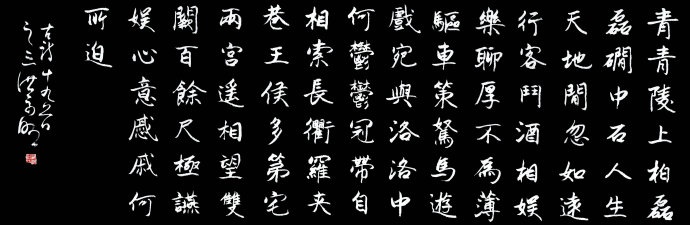 青青陵上柏磊
磊磵中石人生
天地間忽如遠
行客鬥酒相娛
樂聊厚不為薄
驅車策駑馬遊
戲宛與洛洛中
何鬱鬱冠帶自
相索長衢羅夾
巷王侯多第宅
兩宮遙相望雙
闕百餘尺極讌
娛心意慼戚何
所迫
古詩十九首
之三洪